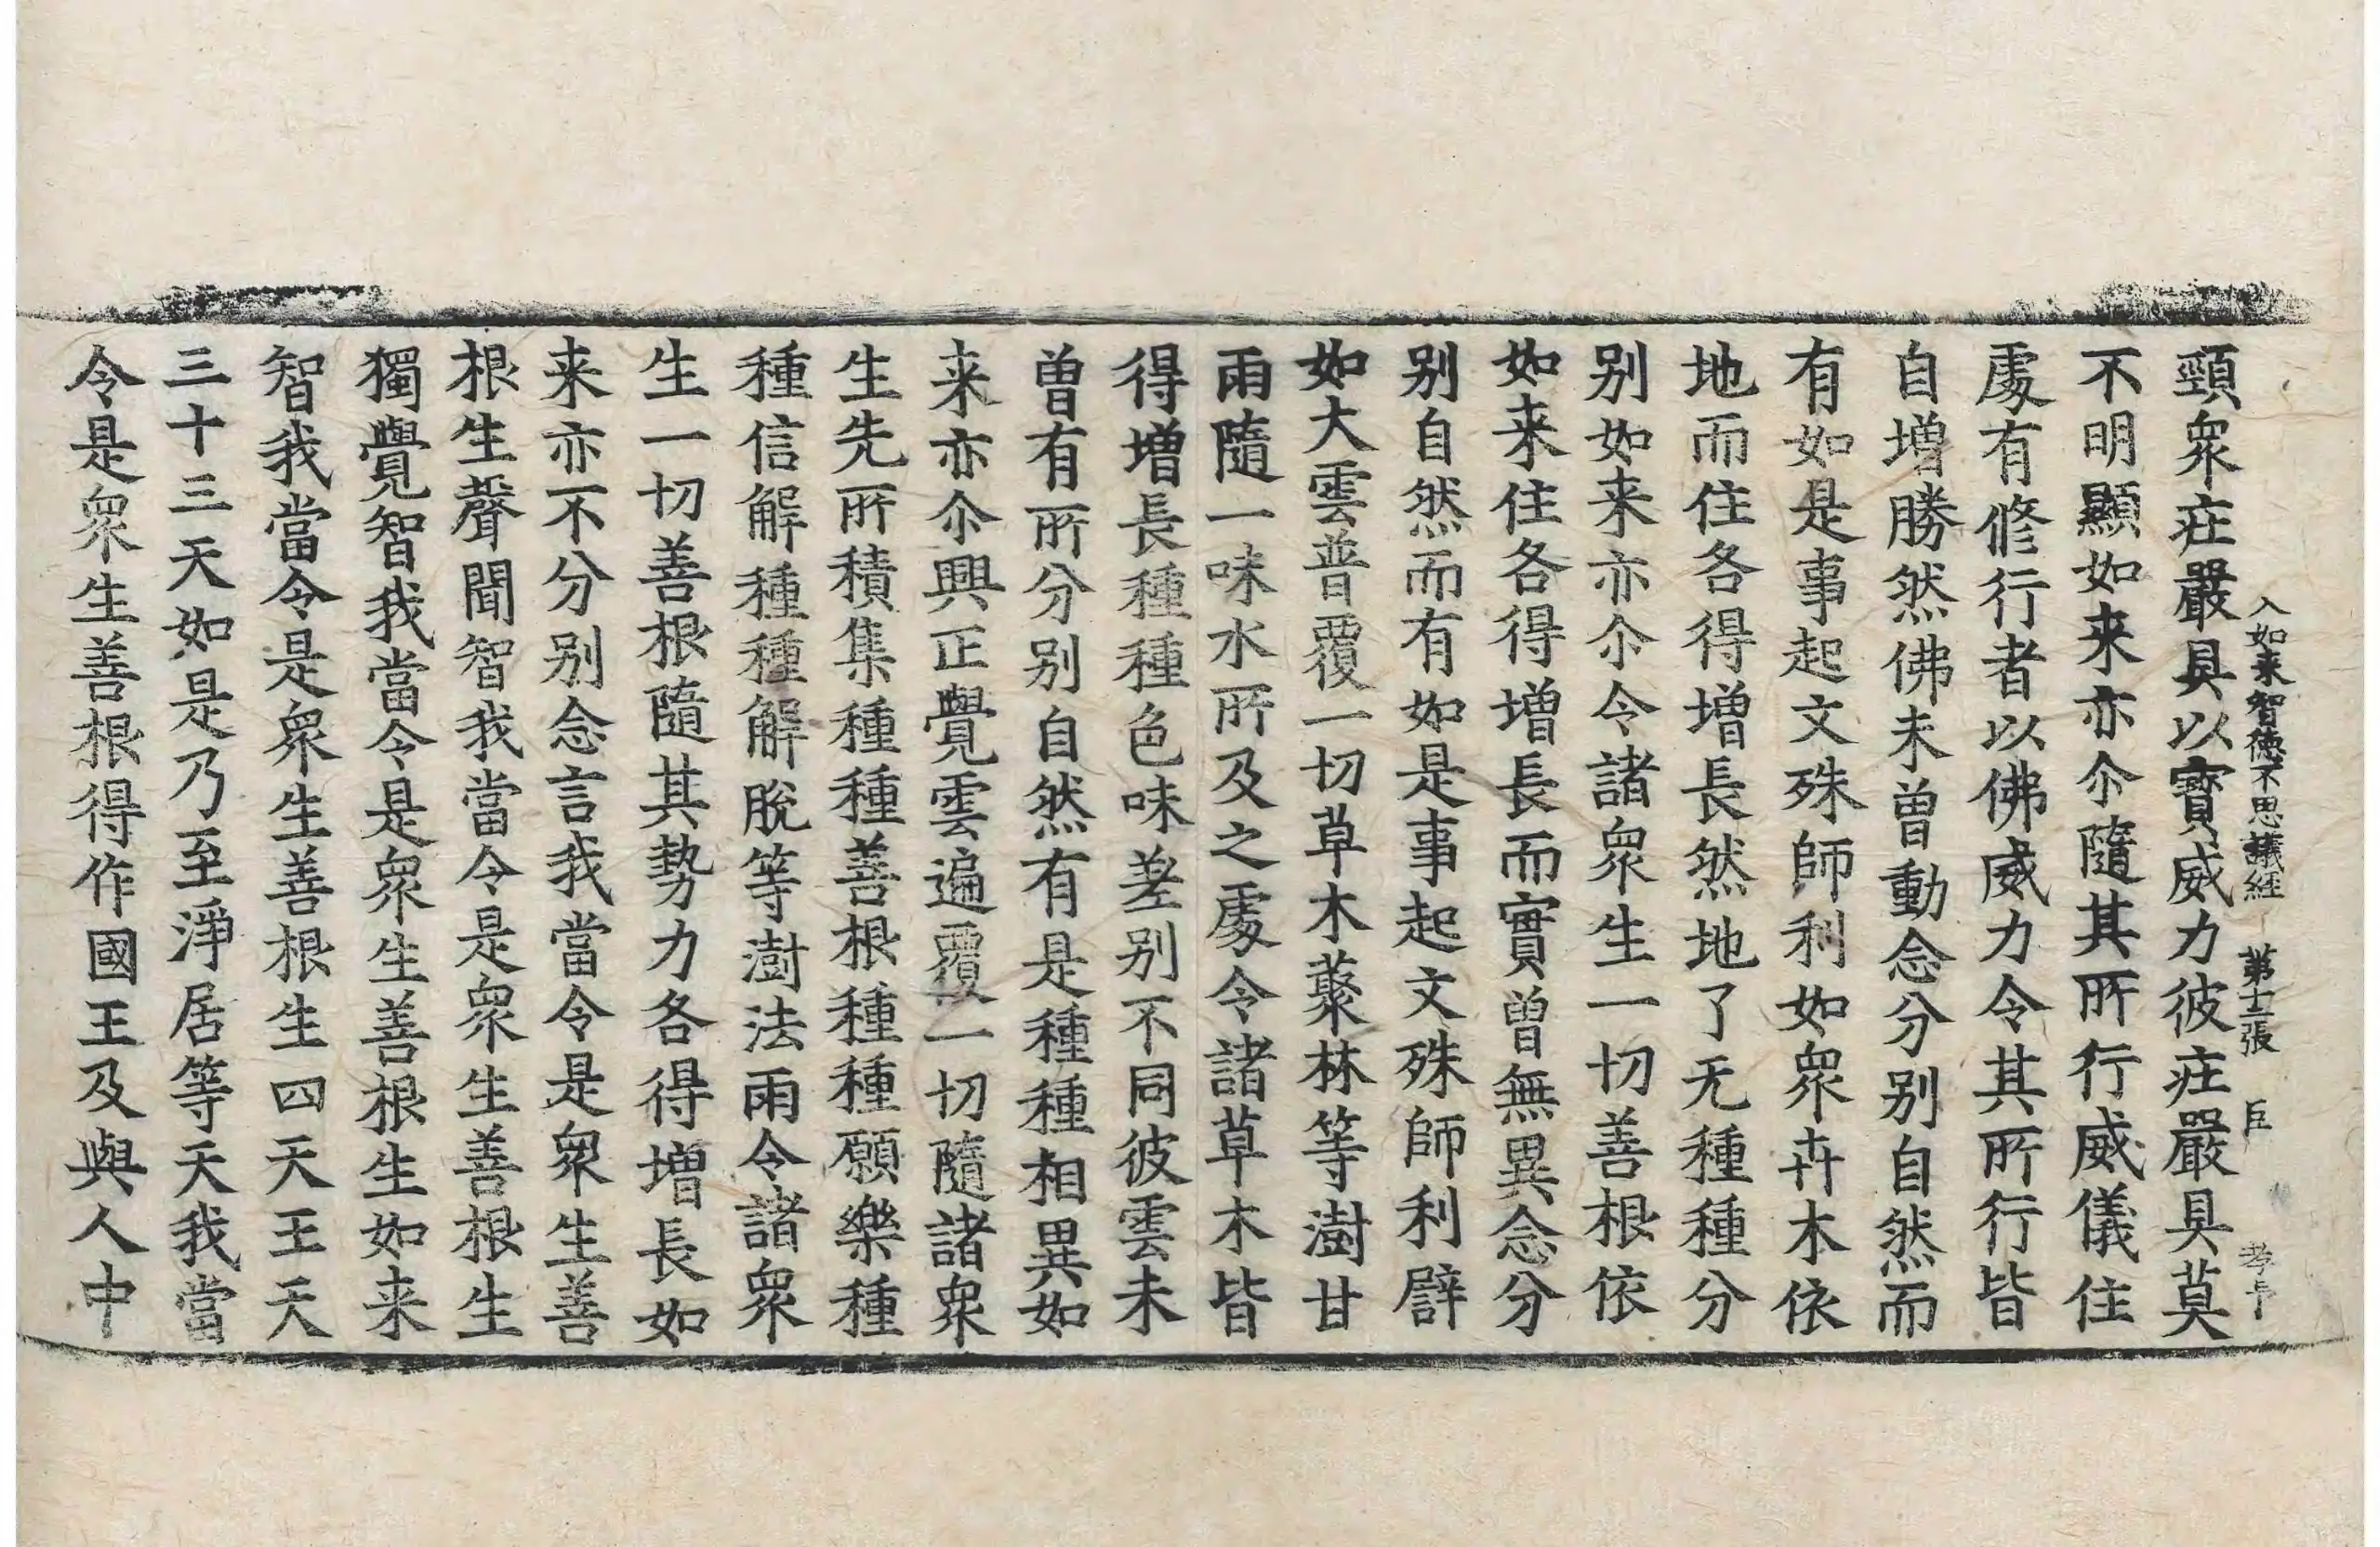 入如来智德不思議經 第十二張 巨
頸衆㽵嚴具以寶威力彼㽵嚴具莫
不明顯如来亦尒隨其所行威儀住
處有修行者以佛威力令其所行皆
自增勝然佛未曾動念分别自然而
有如是事起文殊師利如衆卉木依
地而住各得增長然地了无種種分
别如来亦尒令諸衆生一切善根依
如来住各得增長而實曾無異念分
别自然而有如是事起文殊師利譬
如大雲普覆一切草木藂林等澍甘
雨隨一味水所及之處令諸草木皆
得增長種種色味差别不同彼雲未
曾有所分别自然有是種種相異如
来亦尒興正覺雲遍覆一切隨諸衆
生先所積集種種善根種種願樂種
種信解種種解脫等澍法雨令諸衆
生一切善根隨其勢力各得增長如
来亦不分别念言我當令是衆生善
根生聲聞智我當令是衆生善根生
獨覺智我當令是衆生善根生如来
智我當令是衆生善根生四天王天
三十三天如是乃至淨居等天我當
令是衆生善根得作國王及與人中